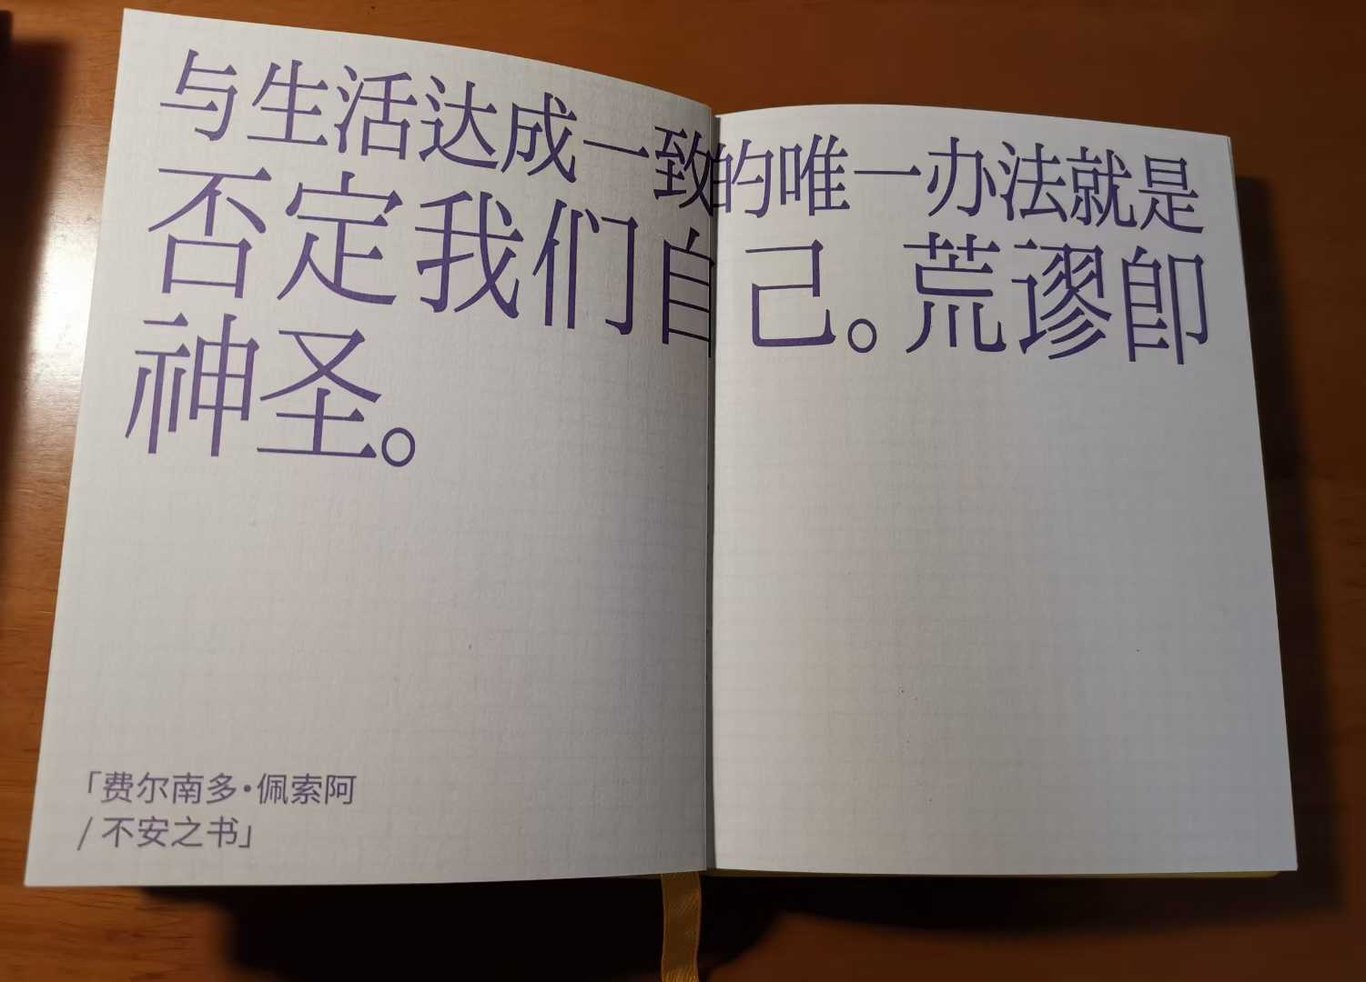 与生活达成一致的唯一办法就是
否定我们自己。荒谬即
神圣。
「费尔南多·佩索阿
/ 不安之书」